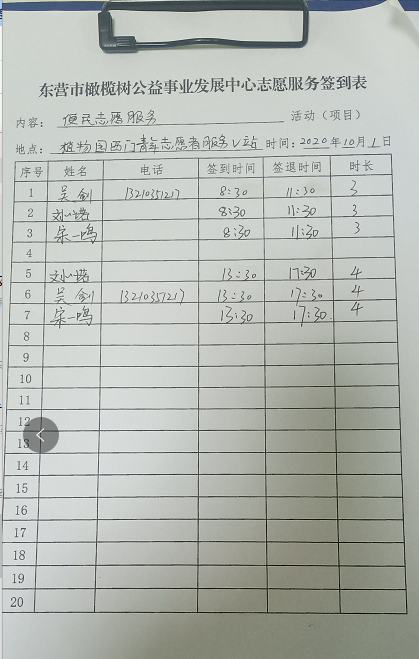 东营市橄榄树公益事业发展中心志愿服务签到表
内容： 便民志愿服务 活动（项目）
地点： 植物园西门青年志愿者服务V站 时间：2020年10月1日
序号 姓名 电话 签到时间 签退时间 时长
1 吴剑 13210351217 8:30 11:30 3
2 刘 8:30 11:30 3
3 宋一鸣 8:30 11:30 3
4
5 刘 13:30 17:30 4
6 吴剑 13210351217 13:30 17:30 4
7 宋一鸣 13:30 17:30 4
8
9
10
11
12
13
14
15
16
17
18
19
20